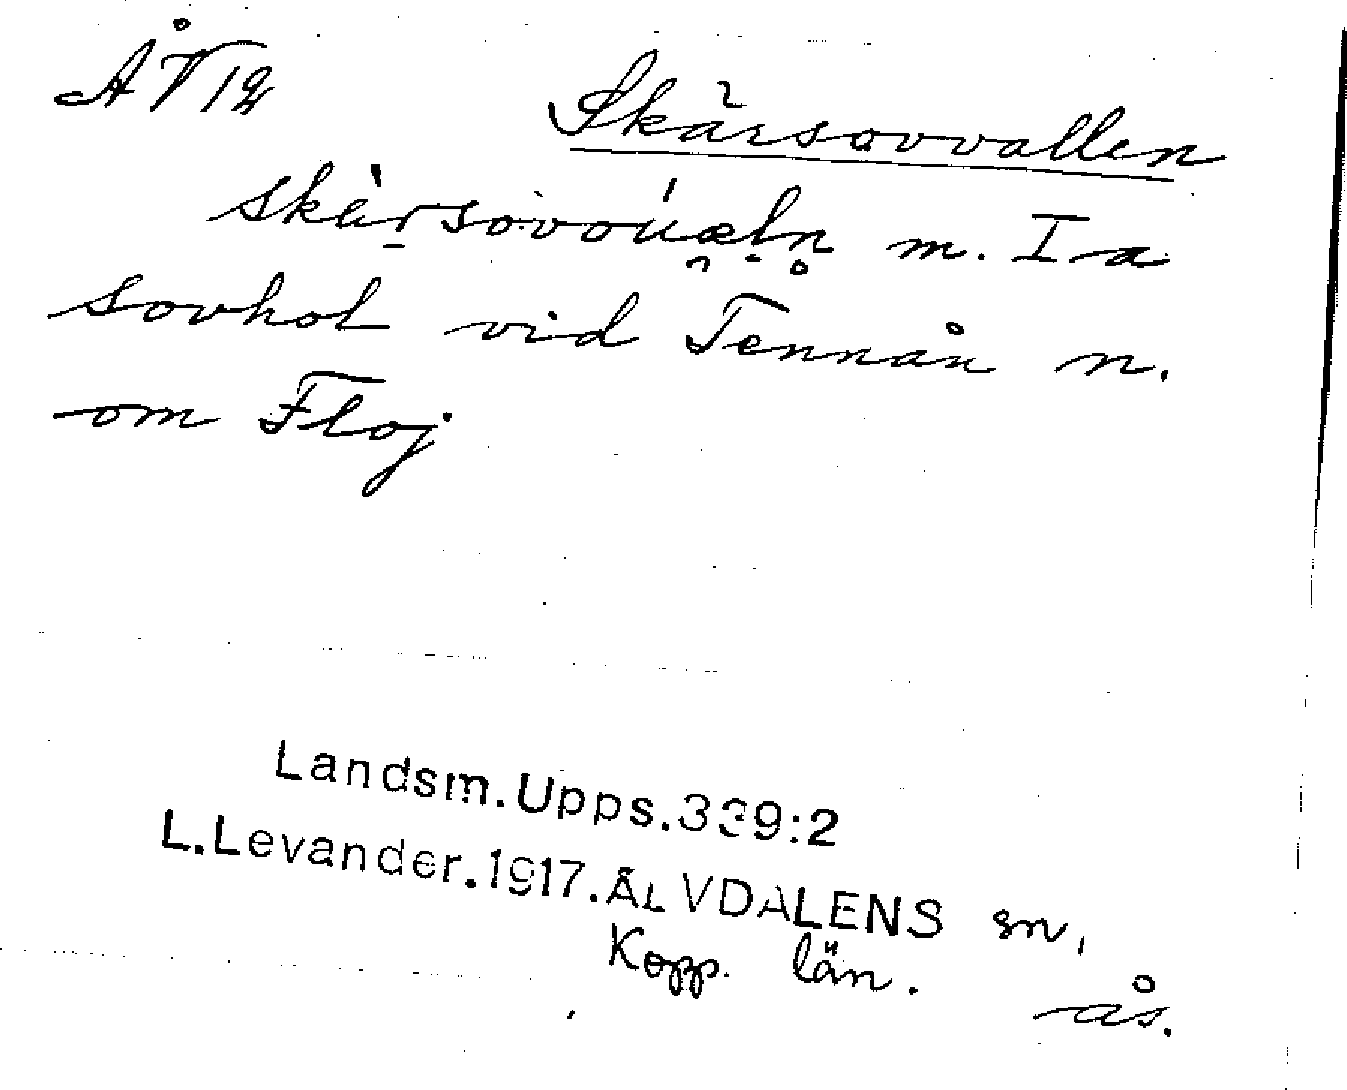 ÅV12
Skärsovvallen
skàrsovoúæln m. Ia
sovhol vid Tennån n.
om Floj
Landsm.Upps.339:2
L.Levander.1917.ÄLVDALENS sn,
Kopp. län.
ås.